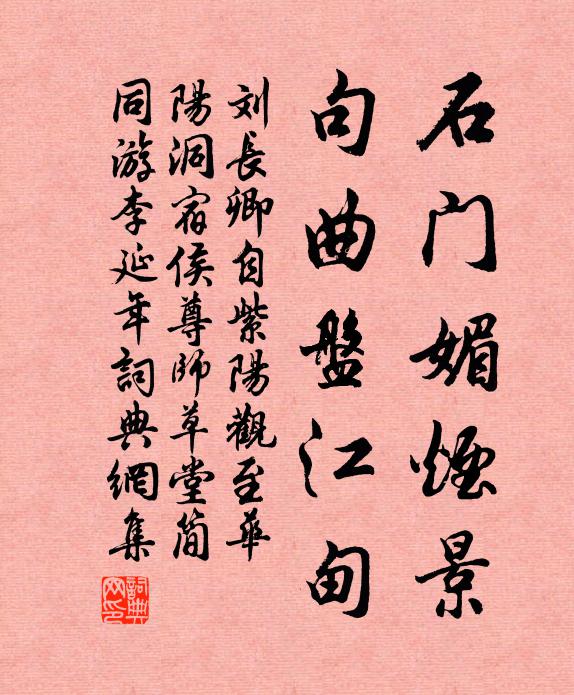 石门媚煙景
句曲盤江甸
刘長卿自紫陽觀至華
陽洞宿侯尊師草堂简
同游李延年詞典網集
詞典網印